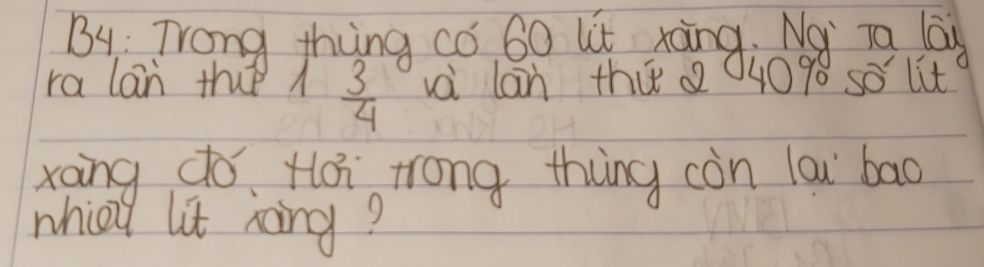 B4: Trong thùng có 60 lít xăng. Ng` ta lấy
ra lần thứ 1 3/4 và lần thứ 2 40% số lít
xăng đó. Hỏi trong thùng còn lại bao
nhiêu lít xăng?